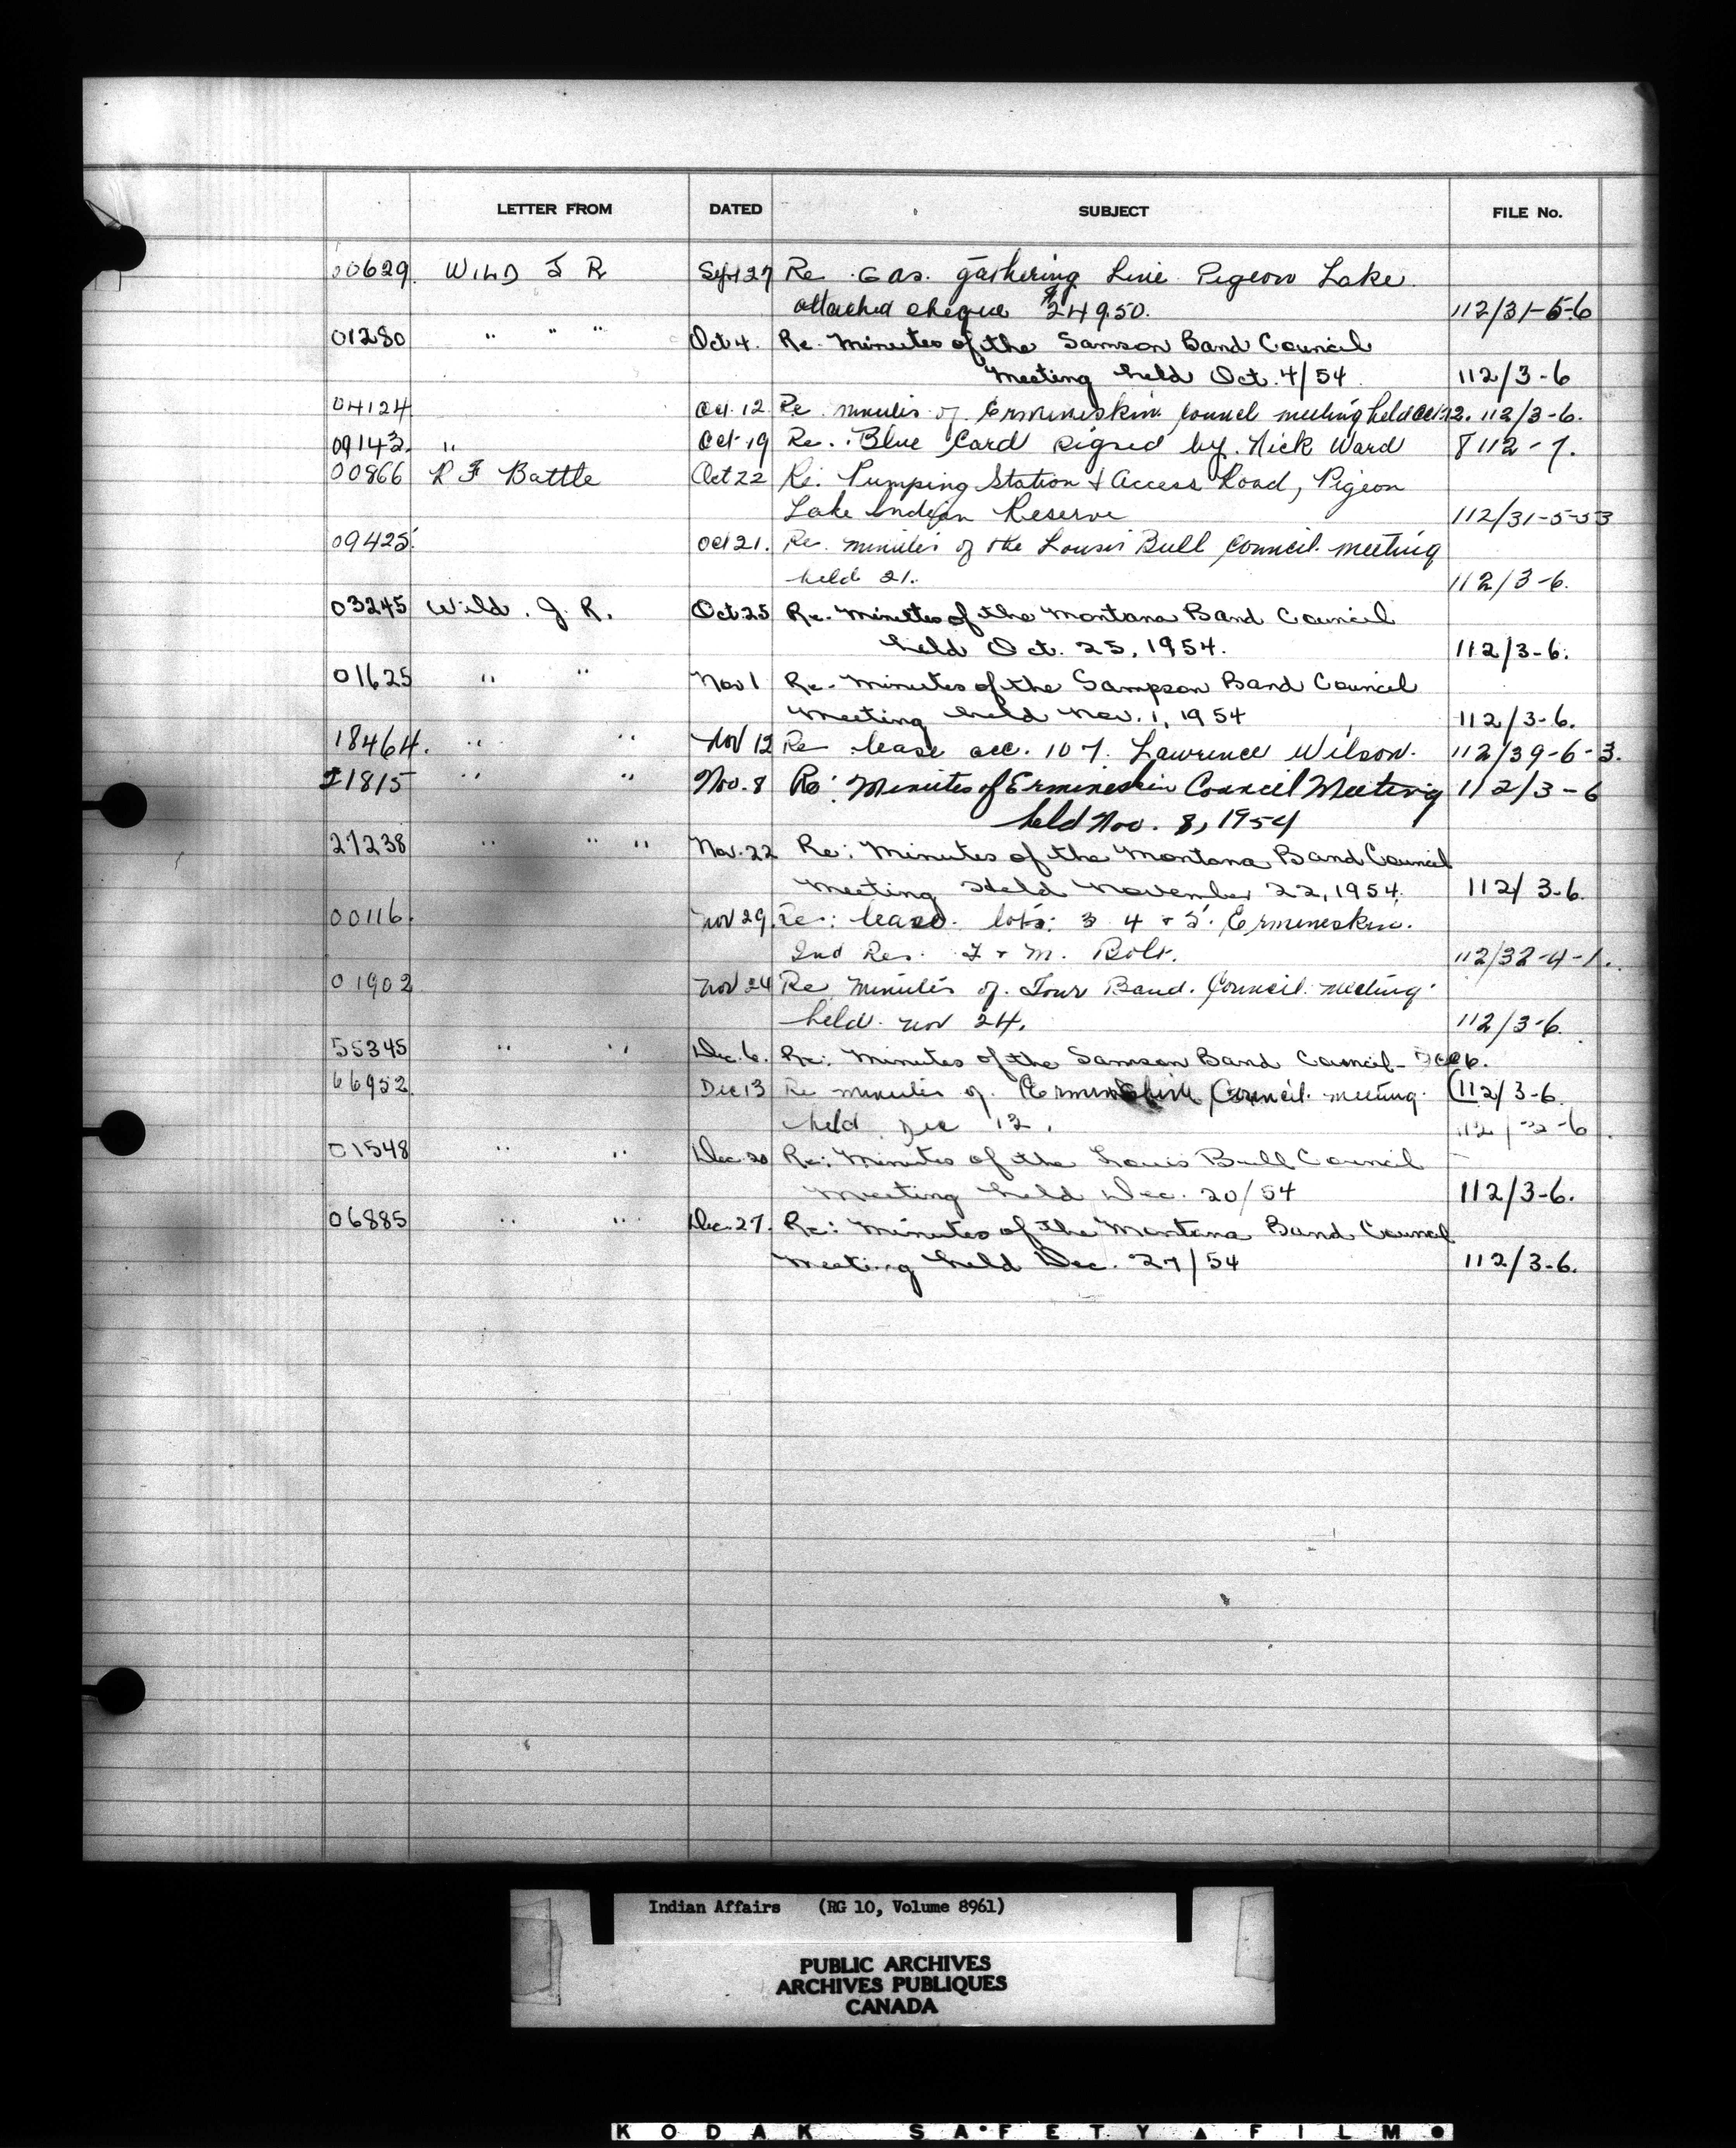 LETTER FROM DATED SUBJECT FILE No.
00629. WILD J R Sept 27 Re Gas. gathering Line Pigeon Lake.
attached cheque $24950. 112/31-5-6
01280 " " " Oct 4. Re. Minutes of the Samson Band Council
Meeting held Oct. 4/54. 112/3-6
04124 Oct. 12. Re minutes of Ermineskin Council meeting held Oct 12. 112/3-6.
09143. " Oct 19 Re. Blue Card signed by. Nick Ward 8112-7.
00866 R F Battle Oct 22 Re. Pumping Station & Access Road, Pigeon
Lake Indian Reserve 112/31-5-53
09425. Oct 21. Re. minutes of the Louis Bull Council meeting
held 21. 112/3-6.
03245 Wild. J. R. Oct. 25 Re. Minutes of the Montana Band Council
held Oct. 25, 1954. 112/3-6.
01625 " " Nov 1 Re. Minutes of the Sampson Band Council
Meeting held Nov. 1, 1954 112/3-6.
18464. " " Nov 12 Re lease acc. 107. Lawrence Wilson. 112/39-6-3.
21815 " " Nov. 8 Re: Minutes of Ermineskin Council Meeting 112/3-6
held Nov. 8, 1954
27238 " " " Nov. 22 Re: Minutes of the Montana Band Council
Meeting Held November 22, 1954. 112/3-6.
00116. Nov 29. Re: lease. lots: 3 4 & 5. Ermineskin.
Ind Res. & M. Bolt. 112/32-4-1.
01902 Nov 24 Re minutes of. Four Band. Council. meeting.
held. nov 24. 112/3-6.
55345 " " Dec. 6. Re: Minutes of the Samson Band Council - Dec 6.
66952. Dec 13 Re minutes of. Ermineskin Council. meeting. (112/3-6.
held Dec 13. 112/3-6.
01548 " " Dec. 20 Re: Minutes of the Louis Bull Council
Meeting held Dec. 20/54 112/3-6.
06885 " " Dec. 27. Re: Minutes of the Montana Band Council
Meeting held Dec. 27/54 112/3-6.
Indian Affairs (RG 10, Volume 8961)
PUBLIC ARCHIVES
ARCHIVES PUBLIQUES
CANADA
KODAK SAFETY FILM